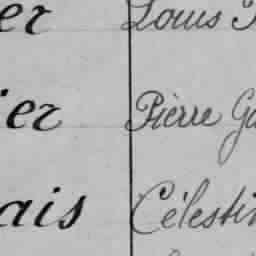 er Louis
ier Pierre Ga
ais Célestin